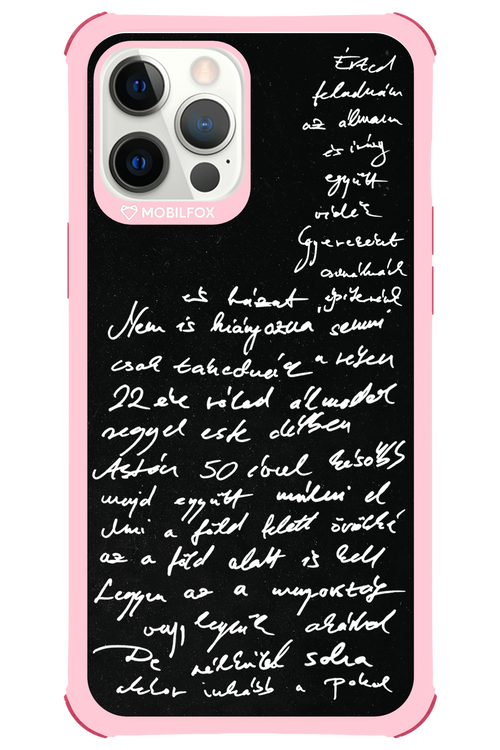 MOBILFOX
Érted
feladnám
az álmaim
és így
együtt
videk
Gyerekeink
csinálnánk
és házat építenénk
Nem is hiányozna semmi
csak takednék a részem
22 éve rólad álmodok
reggel este délben
Aztán 50 évvel később
majd együtt múlni el
Ami a föld felett örökké
az a föld alatt is kell
Legyen az a mennyország
vagy legyünk akárhol
De nélküled soha
akkor inkább a Pokol